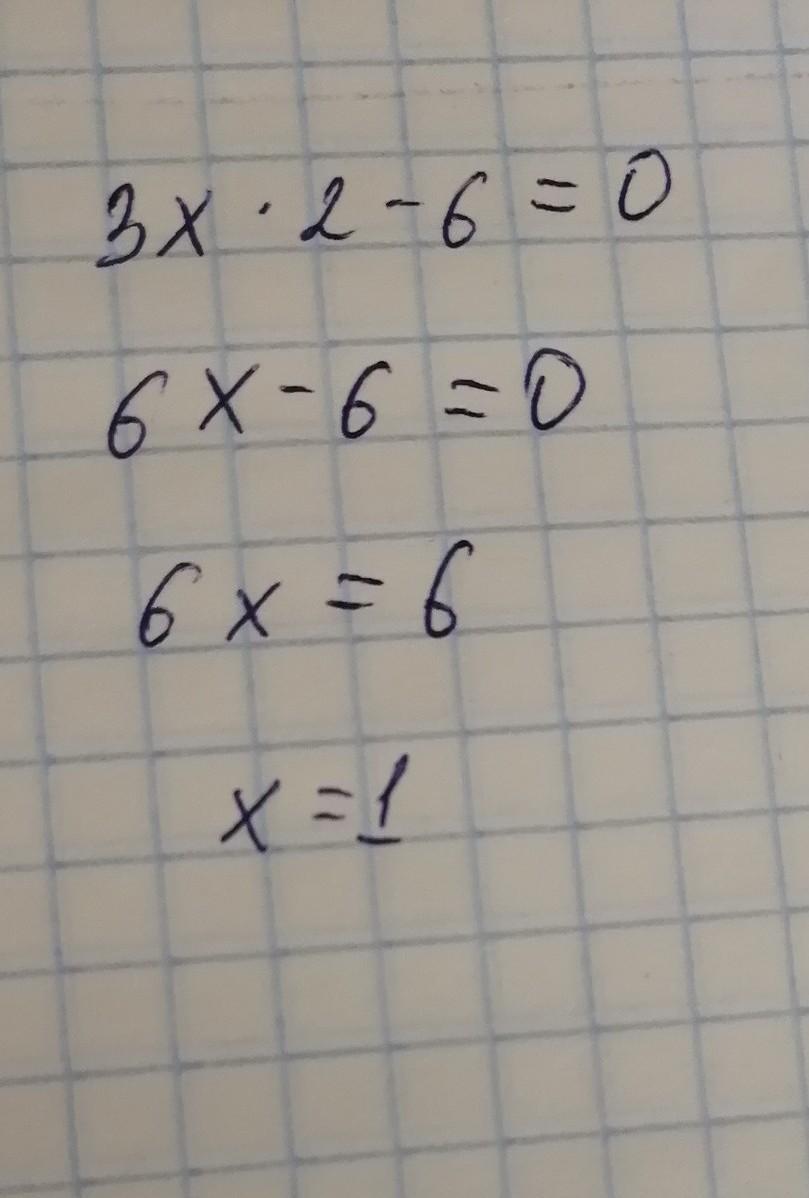 3x · 2 - 6 = 0
6x - 6 = 0
6x = 6
x = 1